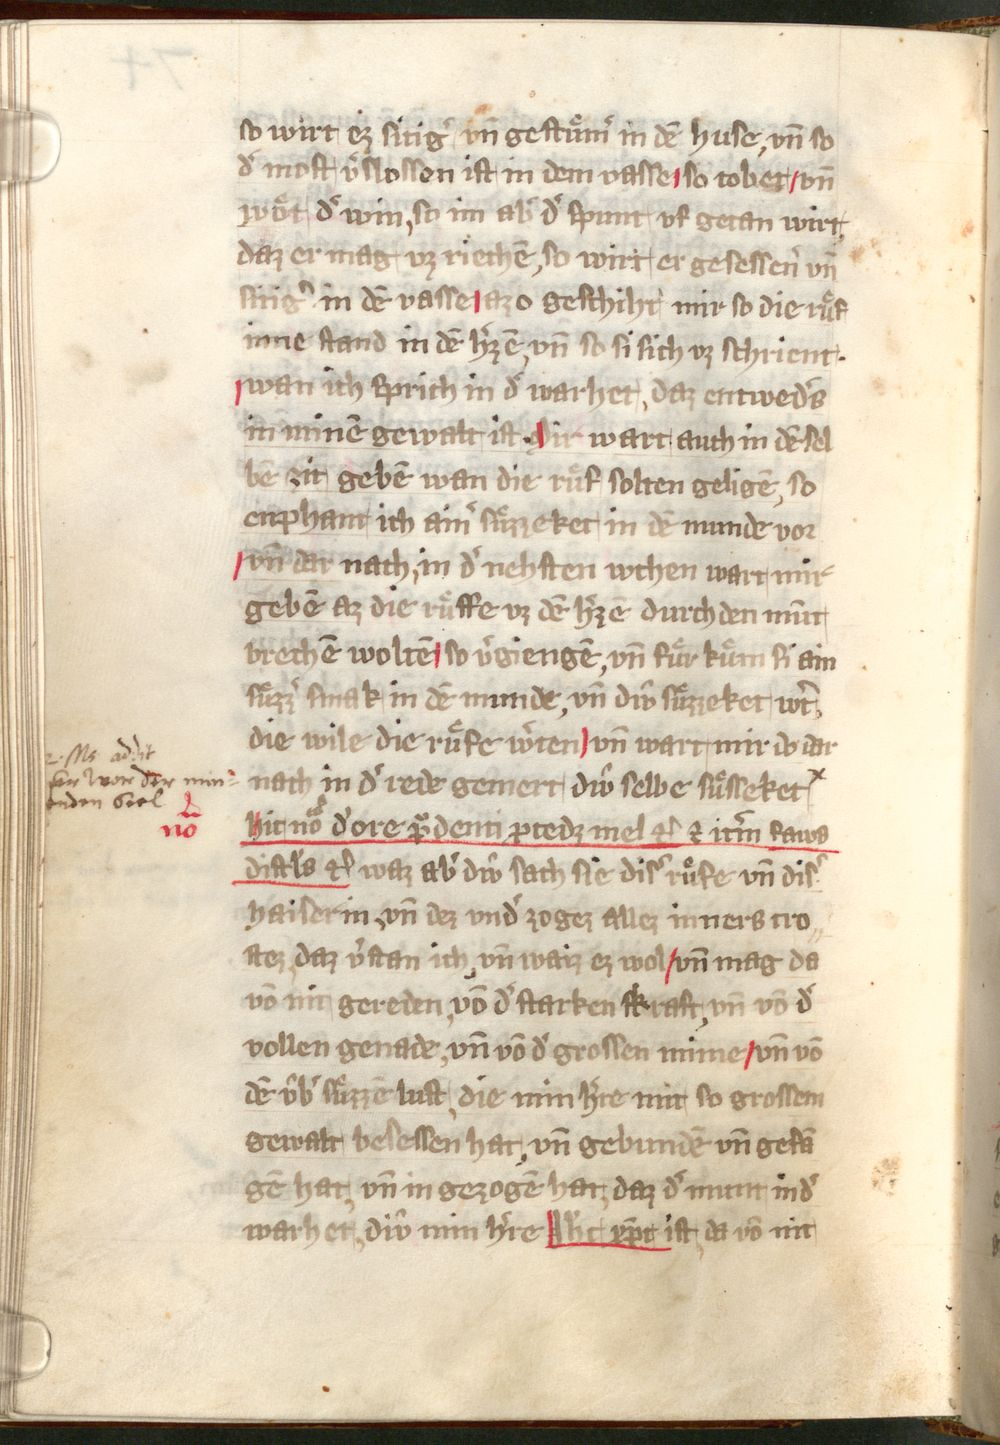 so wirt ez sitig' vn̄ gestuͤm' in dē huse, vn̄ so
d' most v̾slossen ist in dem vasse / so tobet / vn̄
wuͤt d' win, so im ab' d' spunt vf getan wirt,
daz er mag vz riechē, so wirt er gesessen' vn̄
sitig' in dē vasse / azo geschiht mir so die ruͤf
inne stand in dē h'zē, vn̄ so si sich vz schrient.
/ wan ich sprich in d' warhet, daz entwed's
in minē gewalt ist. Mir wart auch in dē sel
bē zit gebē wan die ruͤf solten geligē, so
enphant ich ain' suͤzzeket in dē munde vor
/ vn̄ dar nach, in d' nehsten wchen wart mir
gebē az die ruͤffe vz dē h'zē durch den mūt
brechē woltē / so v'giengē, vn̄ fuͤr kuͤm si ain
suͤzz' smak in dē munde, vn̄ diŵ suͤzzeket w't,
die wile die ruͤfe w'ten / vn̄ wart mir do dar
nach in d' rede gemert diŵ selbe suͤsseket x
2. Ms. addit
der von der min-
enden Seel
no
hic no d'ore p'denti p'cedz mel &c & it'm favus
distl's &c waz ab' diŵ sach sie dis' ruͤfe vn̄ dis'
haiserin, vn̄ dez vnd' zogez allez inners tro
stez, daz v'stan ich, vn̄ waiz ez wol / vn̄ mag da
vō nit gereden, vō d' starken kraft, vn̄ vō d'
vollen genade, vn̄ vō d' grossen minne / vn̄ vō
dē v̂b' suͤzzē lust, die min h're mit so grossem
gewalt besessen hat, vn̄ gebundē vn̄ gefā
gē hat, vn̄ in gezogē hat, daz d' munt in d'
warhet, diŵ min h're Jh'c xp̄c ist, da vō nit